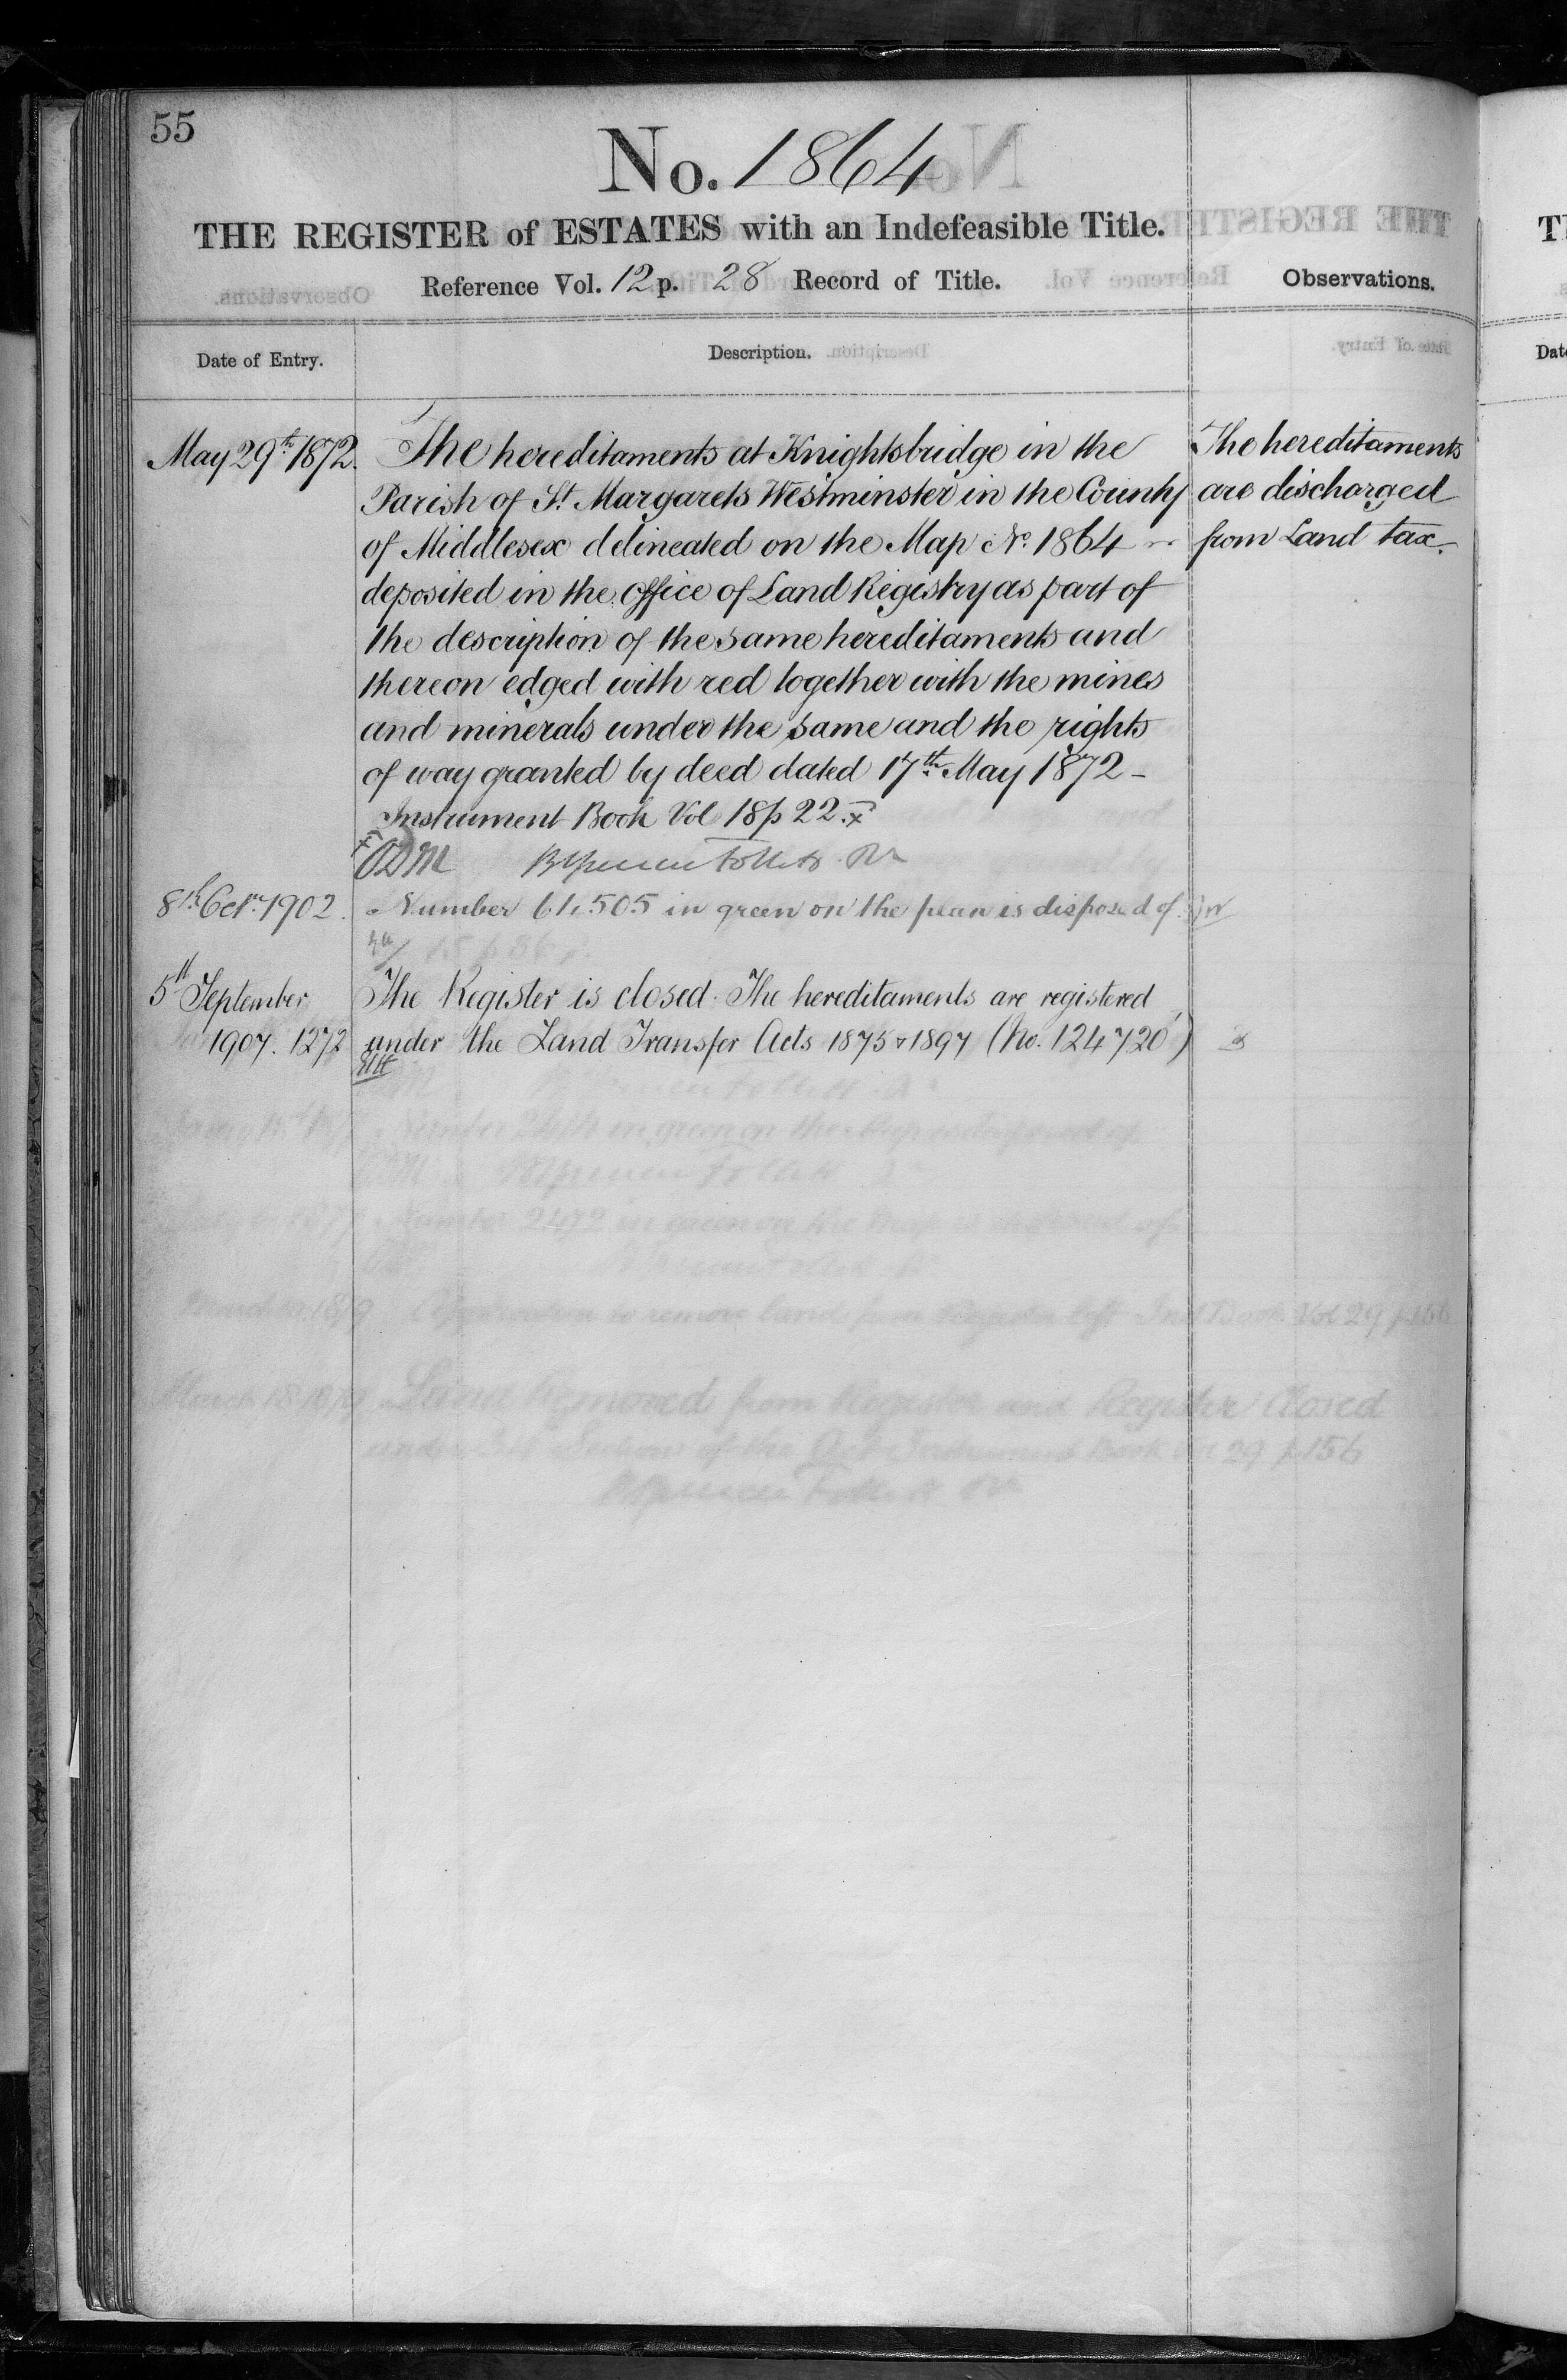 55
No. 1864
THE REGISTER of ESTATES with an Indefeasible Title.
Reference Vol. 12 p. 28 Record of Title.
Observations.
Date of Entry.
Description.
May 29th 1872.
The hereditaments at Knightsbridge in the
Parish of St. Margarets Westminster in the County
of Middlesex delineated on the Map No. 1864
deposited in the office of Land Registry as part of
the description of the same hereditaments and
thereon edged with red together with the mines
and minerals under the same and the rights
of way granted by deed dated 17th May 1872 -
Instrument Book Vol 18 p 22. x
The hereditaments
are discharged
from Land tax.
8th Octr. 1902.
Number 64505 in green on the plan is disposed of.
5th September
1907. 1272
The Register is closed. The hereditaments are registered
under the Land Transfer Acts 1875 & 1897 (No. 124720)